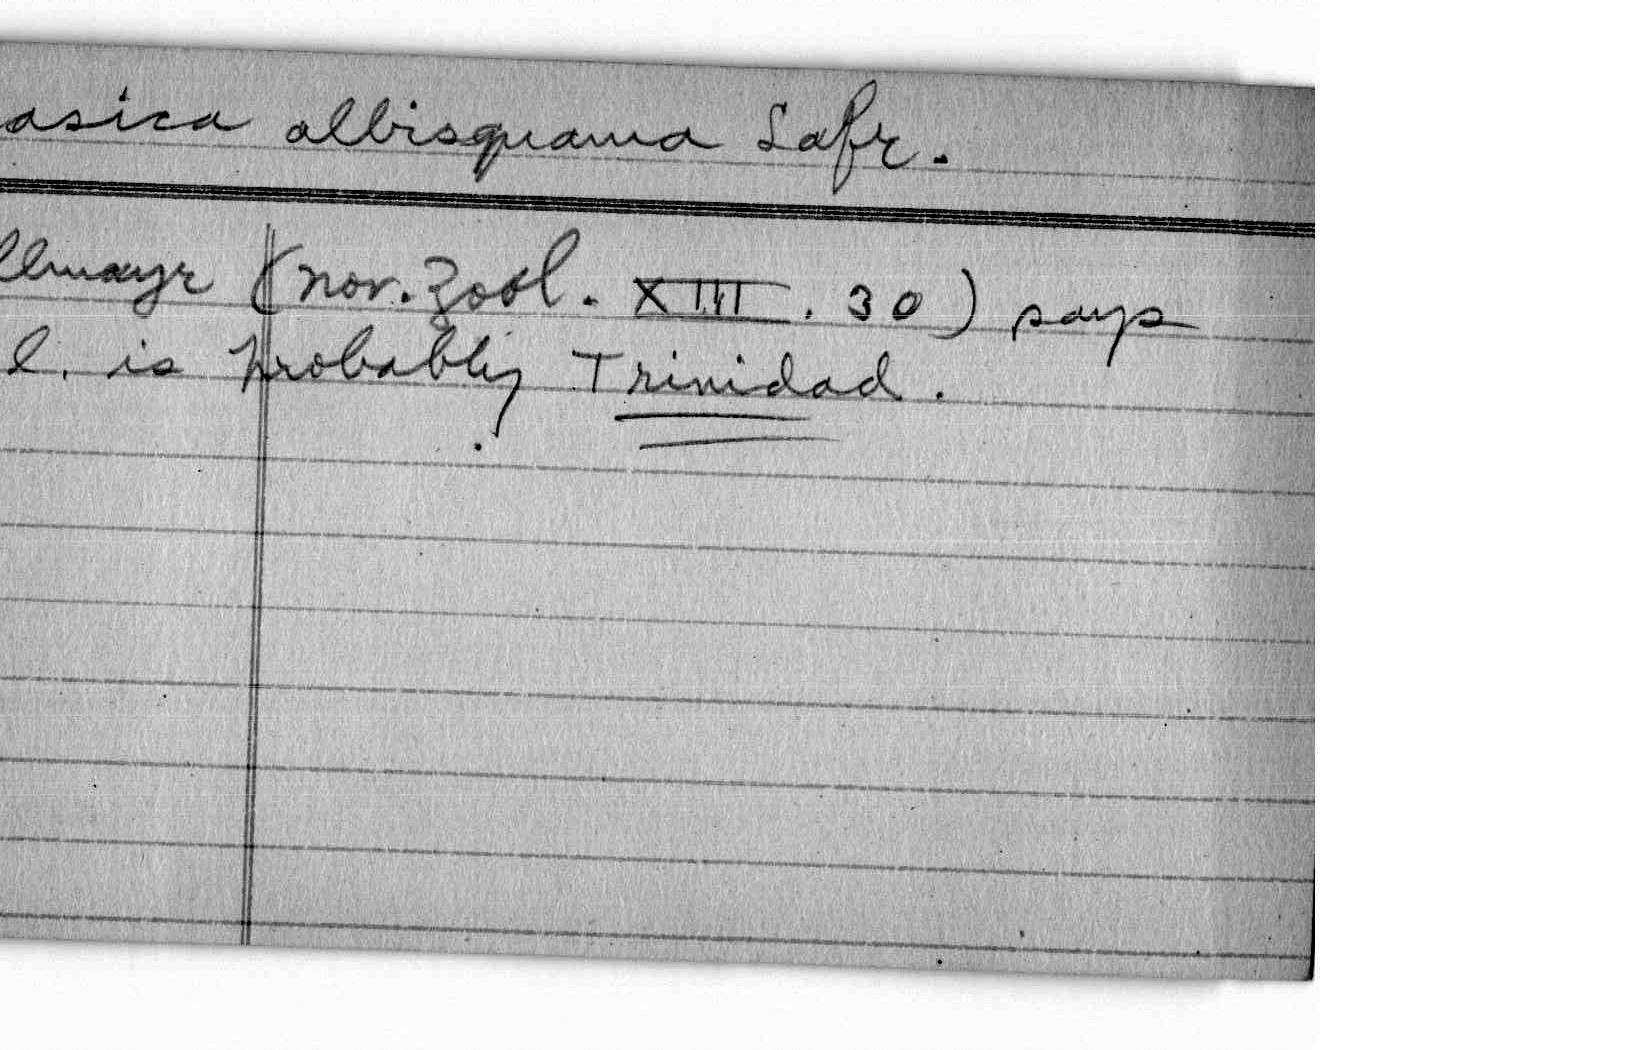 asica albisquama Lafr.
llmayr (Nov. Zool. XIII. 30) says
l. is probably Trinidad.